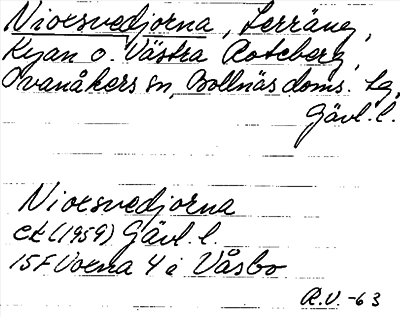 Nioesvedjorna, Serräng,
Ryan o. Västra Roteberg,
Ovanåkers sn, Bollnäs doms. tg,
Gävl. l.
Nioesvedjorna
ek (1959) Gävl. l.
15F Voxna 4 i Våsbo
R.V. -63